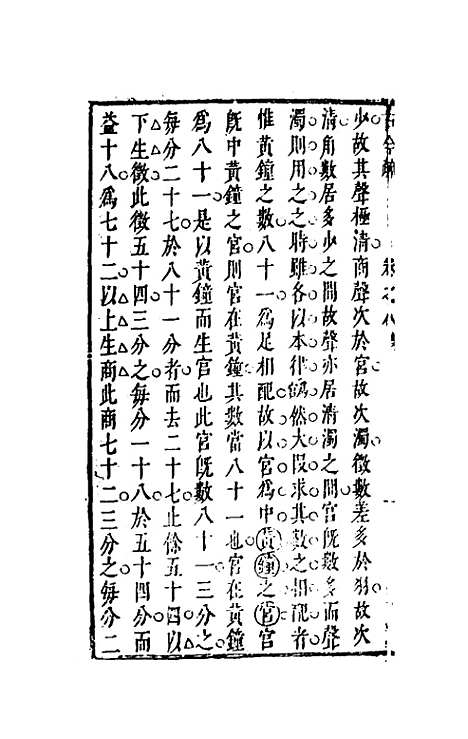 少故其聲極清商聲次於宮故次濁徵數差多於羽故次
清角數居多少之間故聲亦居清濁之間宮既數多而聲
濁則用之之時雖各以本律爲然大段求其數之相配者
惟黃鐘之數八十一爲足相配故以宮爲中黃鐘之宮宮
既中黃鐘之宮則宮在黃鐘其數當八十一也宮在黃鐘
爲八十一是以黃鐘而生宮也此宮既數八十一三分之
每分二十七於八十一分者而去二十七止餘五十四以
下生徵此徵五十四三分之每分一十八於五十四分而
益十八爲七十二以上生商此商七十二三分之每分二